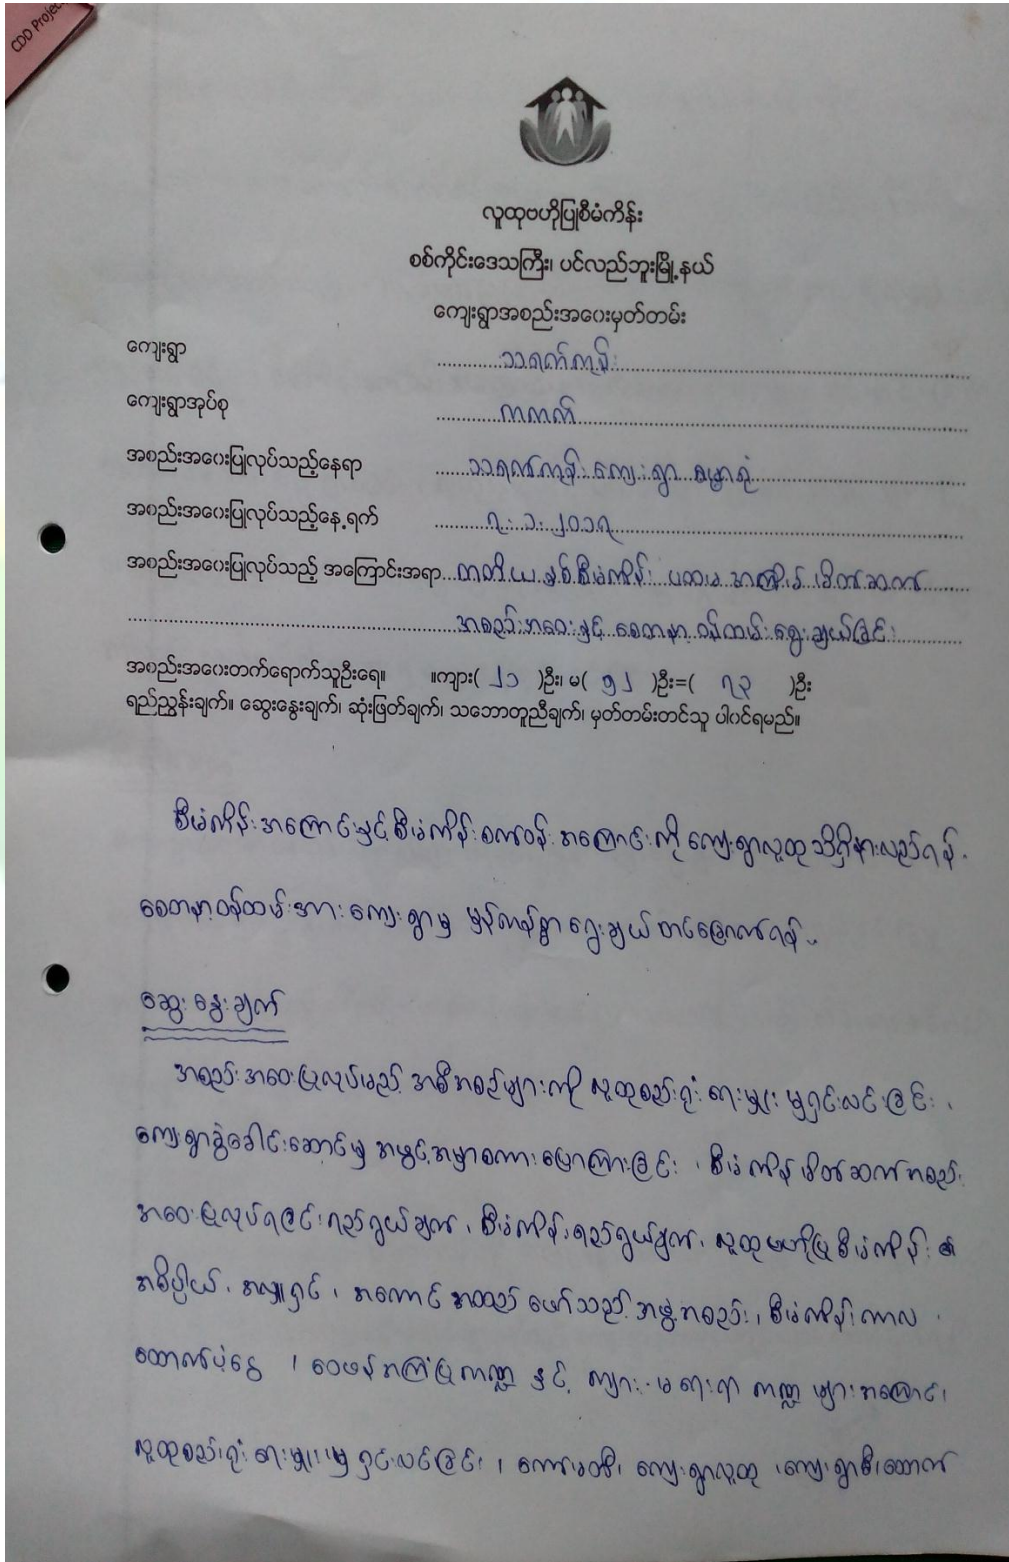 CDD Project
လူထုဗဟိုပြုစီမံကိန်း
စစ်ကိုင်းဒေသကြီး၊ ပင်လည်ဘူးမြို့နယ်
ကျေးရွာအစည်းအဝေးမှတ်တမ်း
ကျေးရွာ သရက်ကုန်း
ကျေးရွာအုပ်စု ကကတ်
အစည်းအဝေးပြုလုပ်သည့်နေရာ သရက်ကုန်း ကျေးရွာ ဓမ္မာရုံ
အစည်းအဝေးပြုလုပ်သည့်နေ့ရက် ၇.၁.၂၀၁၇
အစည်းအဝေးပြုလုပ်သည့် အကြောင်းအရာ တတိယနှစ်စီမံကိန်း ပထမအကြိမ် မိတ်ဆက်
အစည်းအဝေးနှင့် စေတနာ့ဝန်ထမ်းရွေးချယ်ခြင်း
အစည်းအဝေးတက်ရောက်သူဦးရေ။ ။ကျား( ၂၁ )ဦး၊ မ( ၅၂ )ဦး=( ၇၃ )ဦး
ရည်ညွှန်းချက်။ ဆွေးနွေးချက်၊ ဆုံးဖြတ်ချက်၊ သဘောတူညီချက်၊ မှတ်တမ်းတင်သူ ပါဝင်ရမည်။
စီမံကိန်းအကြောင်းနှင့် စီမံကိန်းစက်ဝန်းအကြောင်းကို ကျေးရွာလူထုသိရှိနားလည်ရန်.
စေတနာ့ဝန်ထမ်းအား ကျေးရွာမှ မှန်ကန်စွာ ရွေးချယ်တင်မြှောက်ရန်..
ဆွေးနွေးချက်
အစည်းအဝေးပြုလုပ်မည့် အစီအစဉ်များကို လူထုစည်းရုံးရေးမှူးမှရှင်းလင်းခြင်း၊
ကျေးရွာခွဲခေါင်းဆောင်မှ အဖွင့်အမှာစကားပြောကြားခြင်း၊ စီမံကိန်းမိတ်ဆက်အစည်း
အဝေးပြုလုပ်ရခြင်းရည်ရွယ်ချက်၊ စီမံကိန်းရည်ရွယ်ချက်၊ လူထုဗဟိုပြုစီမံကိန်း၏
အဓိပ္ပါယ်၊ အလှူရှင်၊ အကောင်အထည်ဖော်သည့်အဖွဲ့အစည်း၊ စီမံကိန်းကာလ၊
ထောက်ပံ့ငွေ၊ ဝေဖန်အကြံပြုကဏ္ဍ နှင့် ကျား-မ ရေးရာ ကဏ္ဍများအကြောင်း
လူထုစည်းရုံးရေးမှူးမှ ရှင်းလင်းခြင်း၊ ကော်မတီ၊ ကျေးရွာလူထု၊ ကျေးရွာစီးထောက်